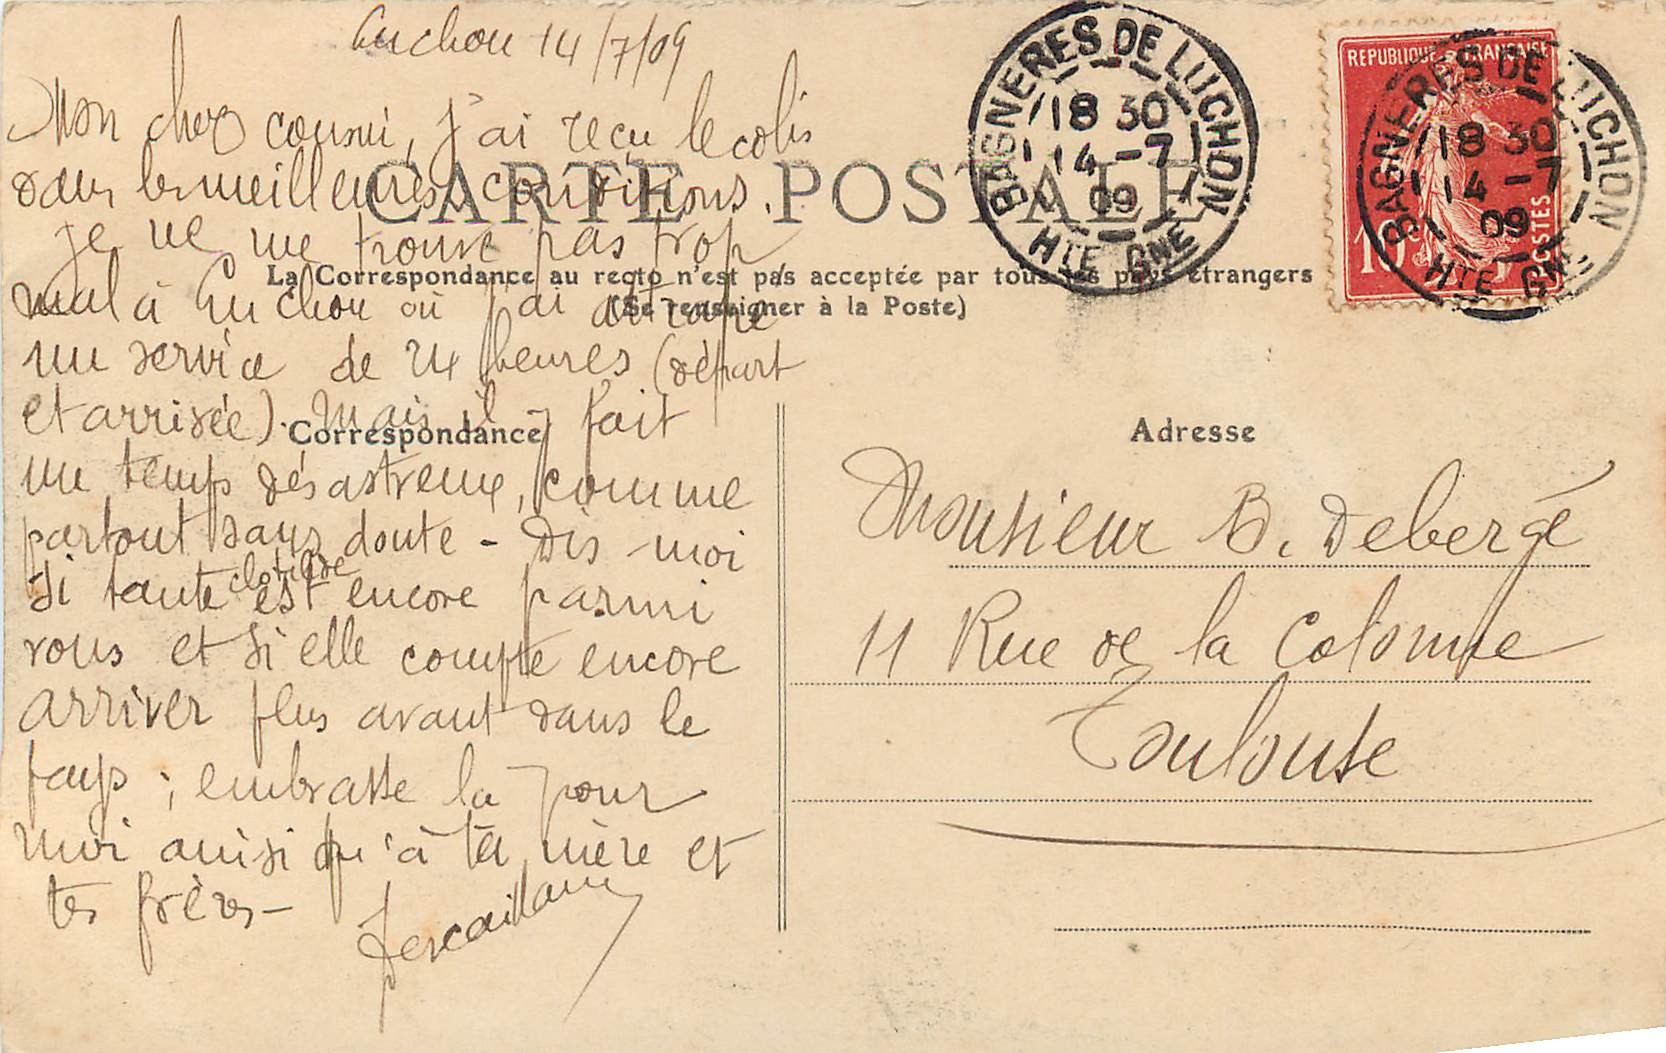 Luchon 14/7/09
Mon cher cousin, j'ai reçu le colis
dans les meilleures conditions.
je ne me trouve pas trop
mal à Luchon où j'ai attrapé
un service de 24 heures (départ
et arrivée). Mais il y fait
un temps désastreux, comme
partout sans doute - Dis-moi
si tante Clotilde est encore parmi
vous et si elle compte encore
arriver plus avant dans le
pays ; embrasse la pour
moi ainsi qu'à ta mère et
tes frères -
CARTE POSTALE
La Correspondance au recto n'est pas acceptée par tous les pays étrangers
(Se renseigner à la Poste)
Correspondance
Adresse
Monsieur B. Debergé
11 Rue de la Colombe
Toulouse
BAGNERES DE LUCHON
18 30
14 - 7
09
HTE GNE
REPUBLIQUE FRANÇAISE
10c
POSTES
BAGNERES DE LUCHON
18 30
14 - 7
09
HTE GNE